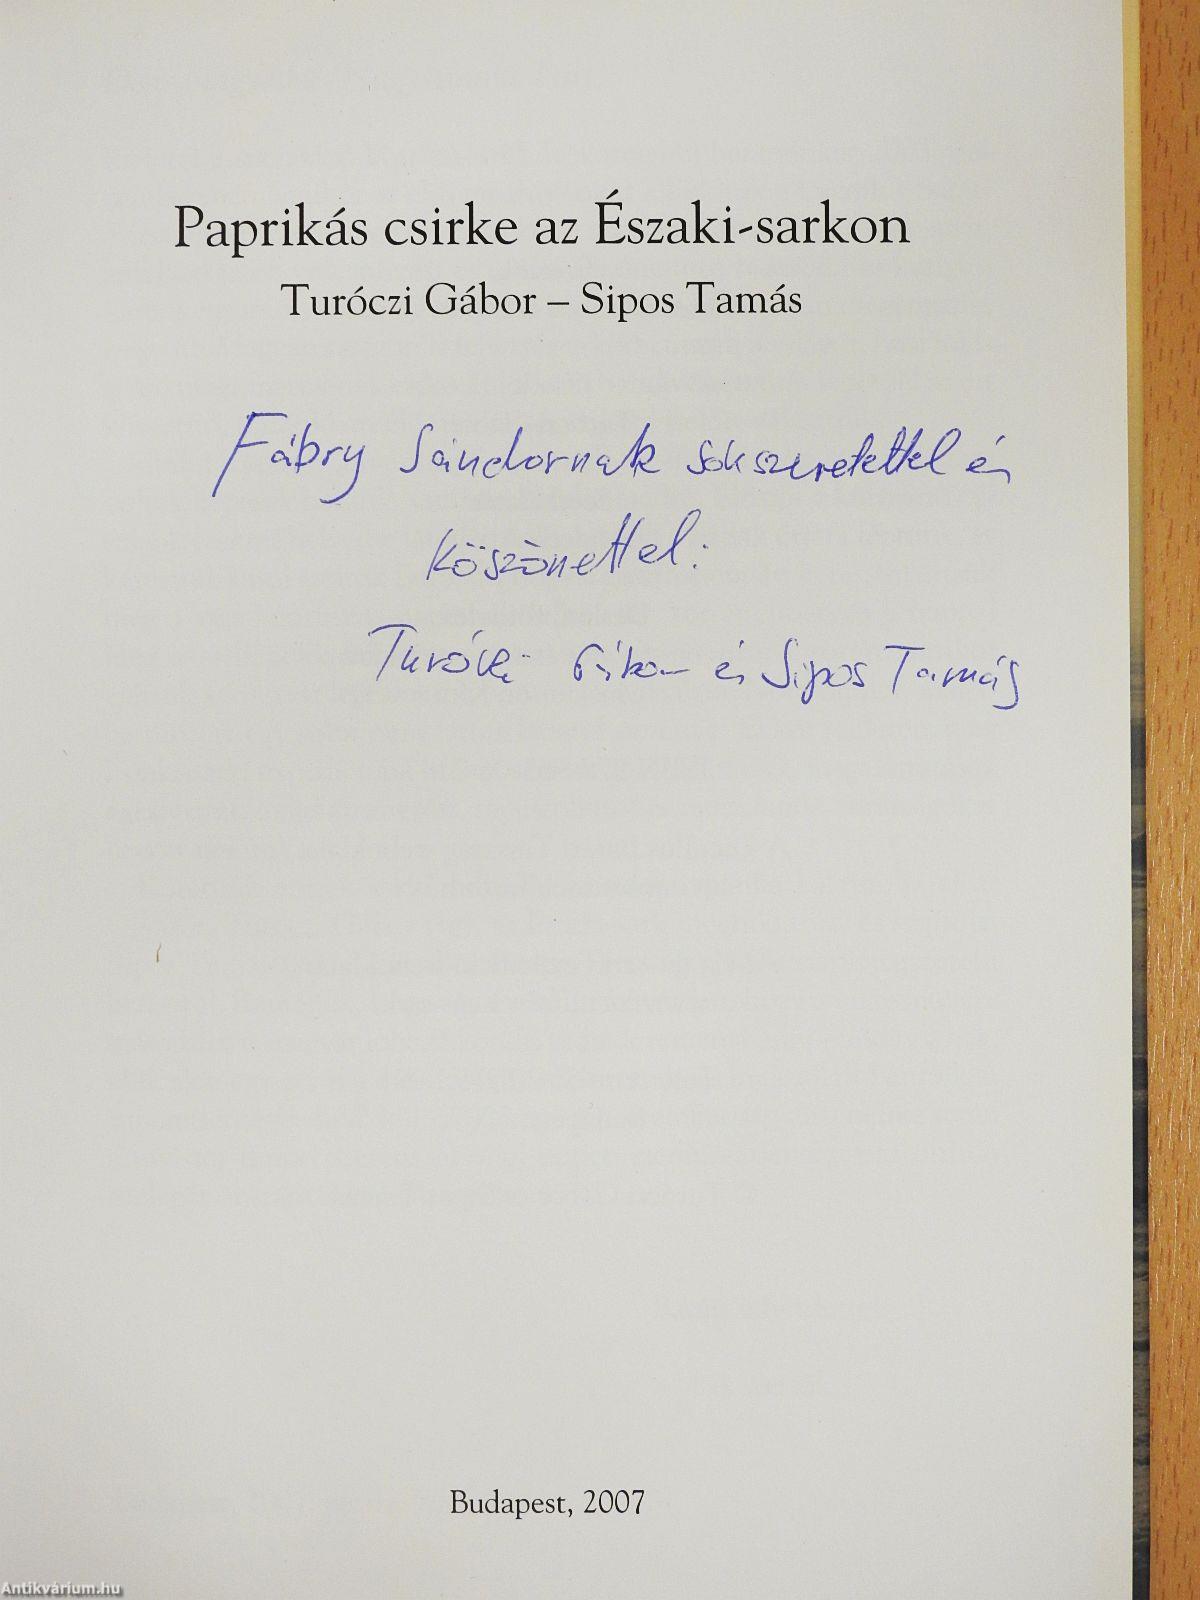 Paprikás csirke az Északi-sarkon
Turóczi Gábor – Sipos Tamás
Fábry Sándornak sok szeretettel és
köszönettel:
Turóczi Gábor és Sipos Tamás
Budapest, 2007
Antikvárium.hu